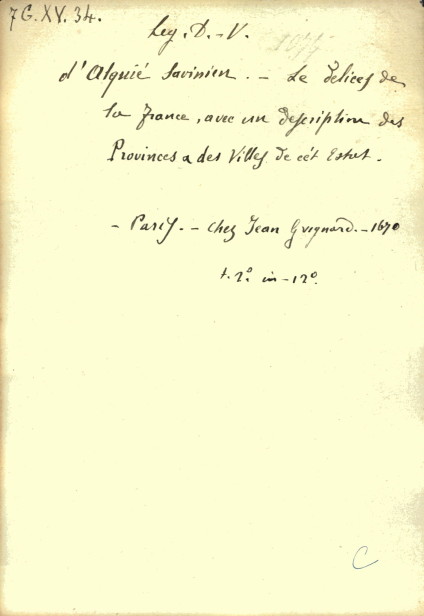 7G.XV.34.
Leg. D.-V.
d'Alquié Savinien. - Le Delices de
la France, avec un description des
Provinces & des Villes de cét Estat.
- Paris. - chez Jean Guignard. - 1670
t. 2º. in-12º.
C